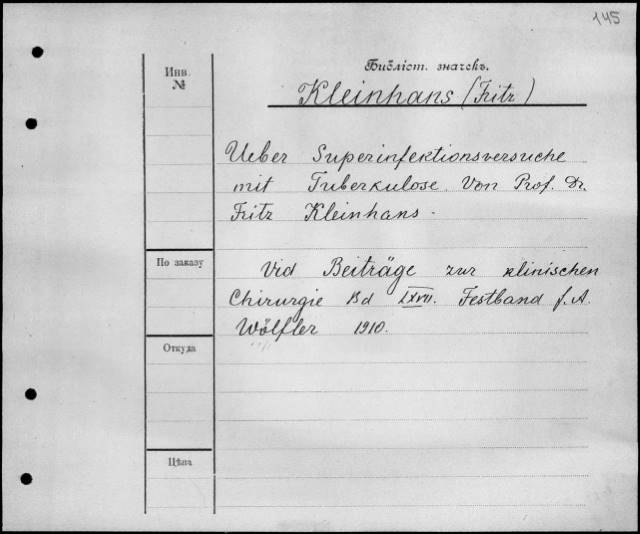 145
Библіот. значекъ.
Инв. №
Kleinhans (Fritz)
Ueber Superinfektionsversuche
mit Tuberkulose. Von Prof. Dr.
Fritz Kleinhans.
По заказу
Vid Beiträge zur klinischen
Chirurgie Bd LXVII. Festband f. A.
Wölfler 1910.
Откуда
Цѣна